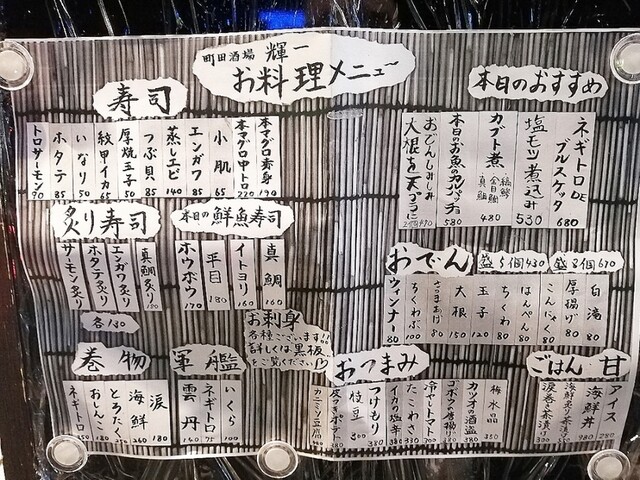 町田酒場 輝一
お料理メニュー
寿司
本マグロ赤身 190
本マグロ中トロ 220
小肌 65
エンガワ 85
蒸しエビ 140
つぶ貝 85
厚焼玉子 50
紋甲イカ 65
いなり 50
ホタテ 85
トロサーモン 90
炙り寿司
真鯛炙り
エンガワ炙り
ホタテ炙り
サーモン炙り
本日の鮮魚寿司
真鯛 160
イトヨリ 160
平目 180
ホウボウ 170
お刺身
各種ございます!!
詳しくは黒板
をご覧ください
巻物
涙 180
海鮮 260
とろたく
おしんこ 180
ネギトロ
軍艦
いくら 100
ネギトロ 95
雲丹
本日のおすすめ
ネギトロDE
ブルスケッタ 680
塩モツ煮込み 530
カブト煮 480
本日のお魚のカルパッチョ 580
おでんじみしみ
大根を天ぷらに
おでん
盛5個430
盛8個670
白滝 80
厚揚げ 80
こんにゃく 80
はんぺん 80
ちくわ 80
玉子 120
大根 150
さつまあげ 80
ちくわぶ 100
ウィンナー 80
おつまみ
梅水晶 350
カツオの酒盗 380
ゴボウの唐揚げ
冷やしトマト
たこわさ 330
イカの塩辛 380
つけもり 380
枝豆
皮つきポテト 380
カニミソ豆腐
ごはん
海鮮丼 980
海鮮炙り茶漬け
涙巻き茶漬け
甘
アイス 280